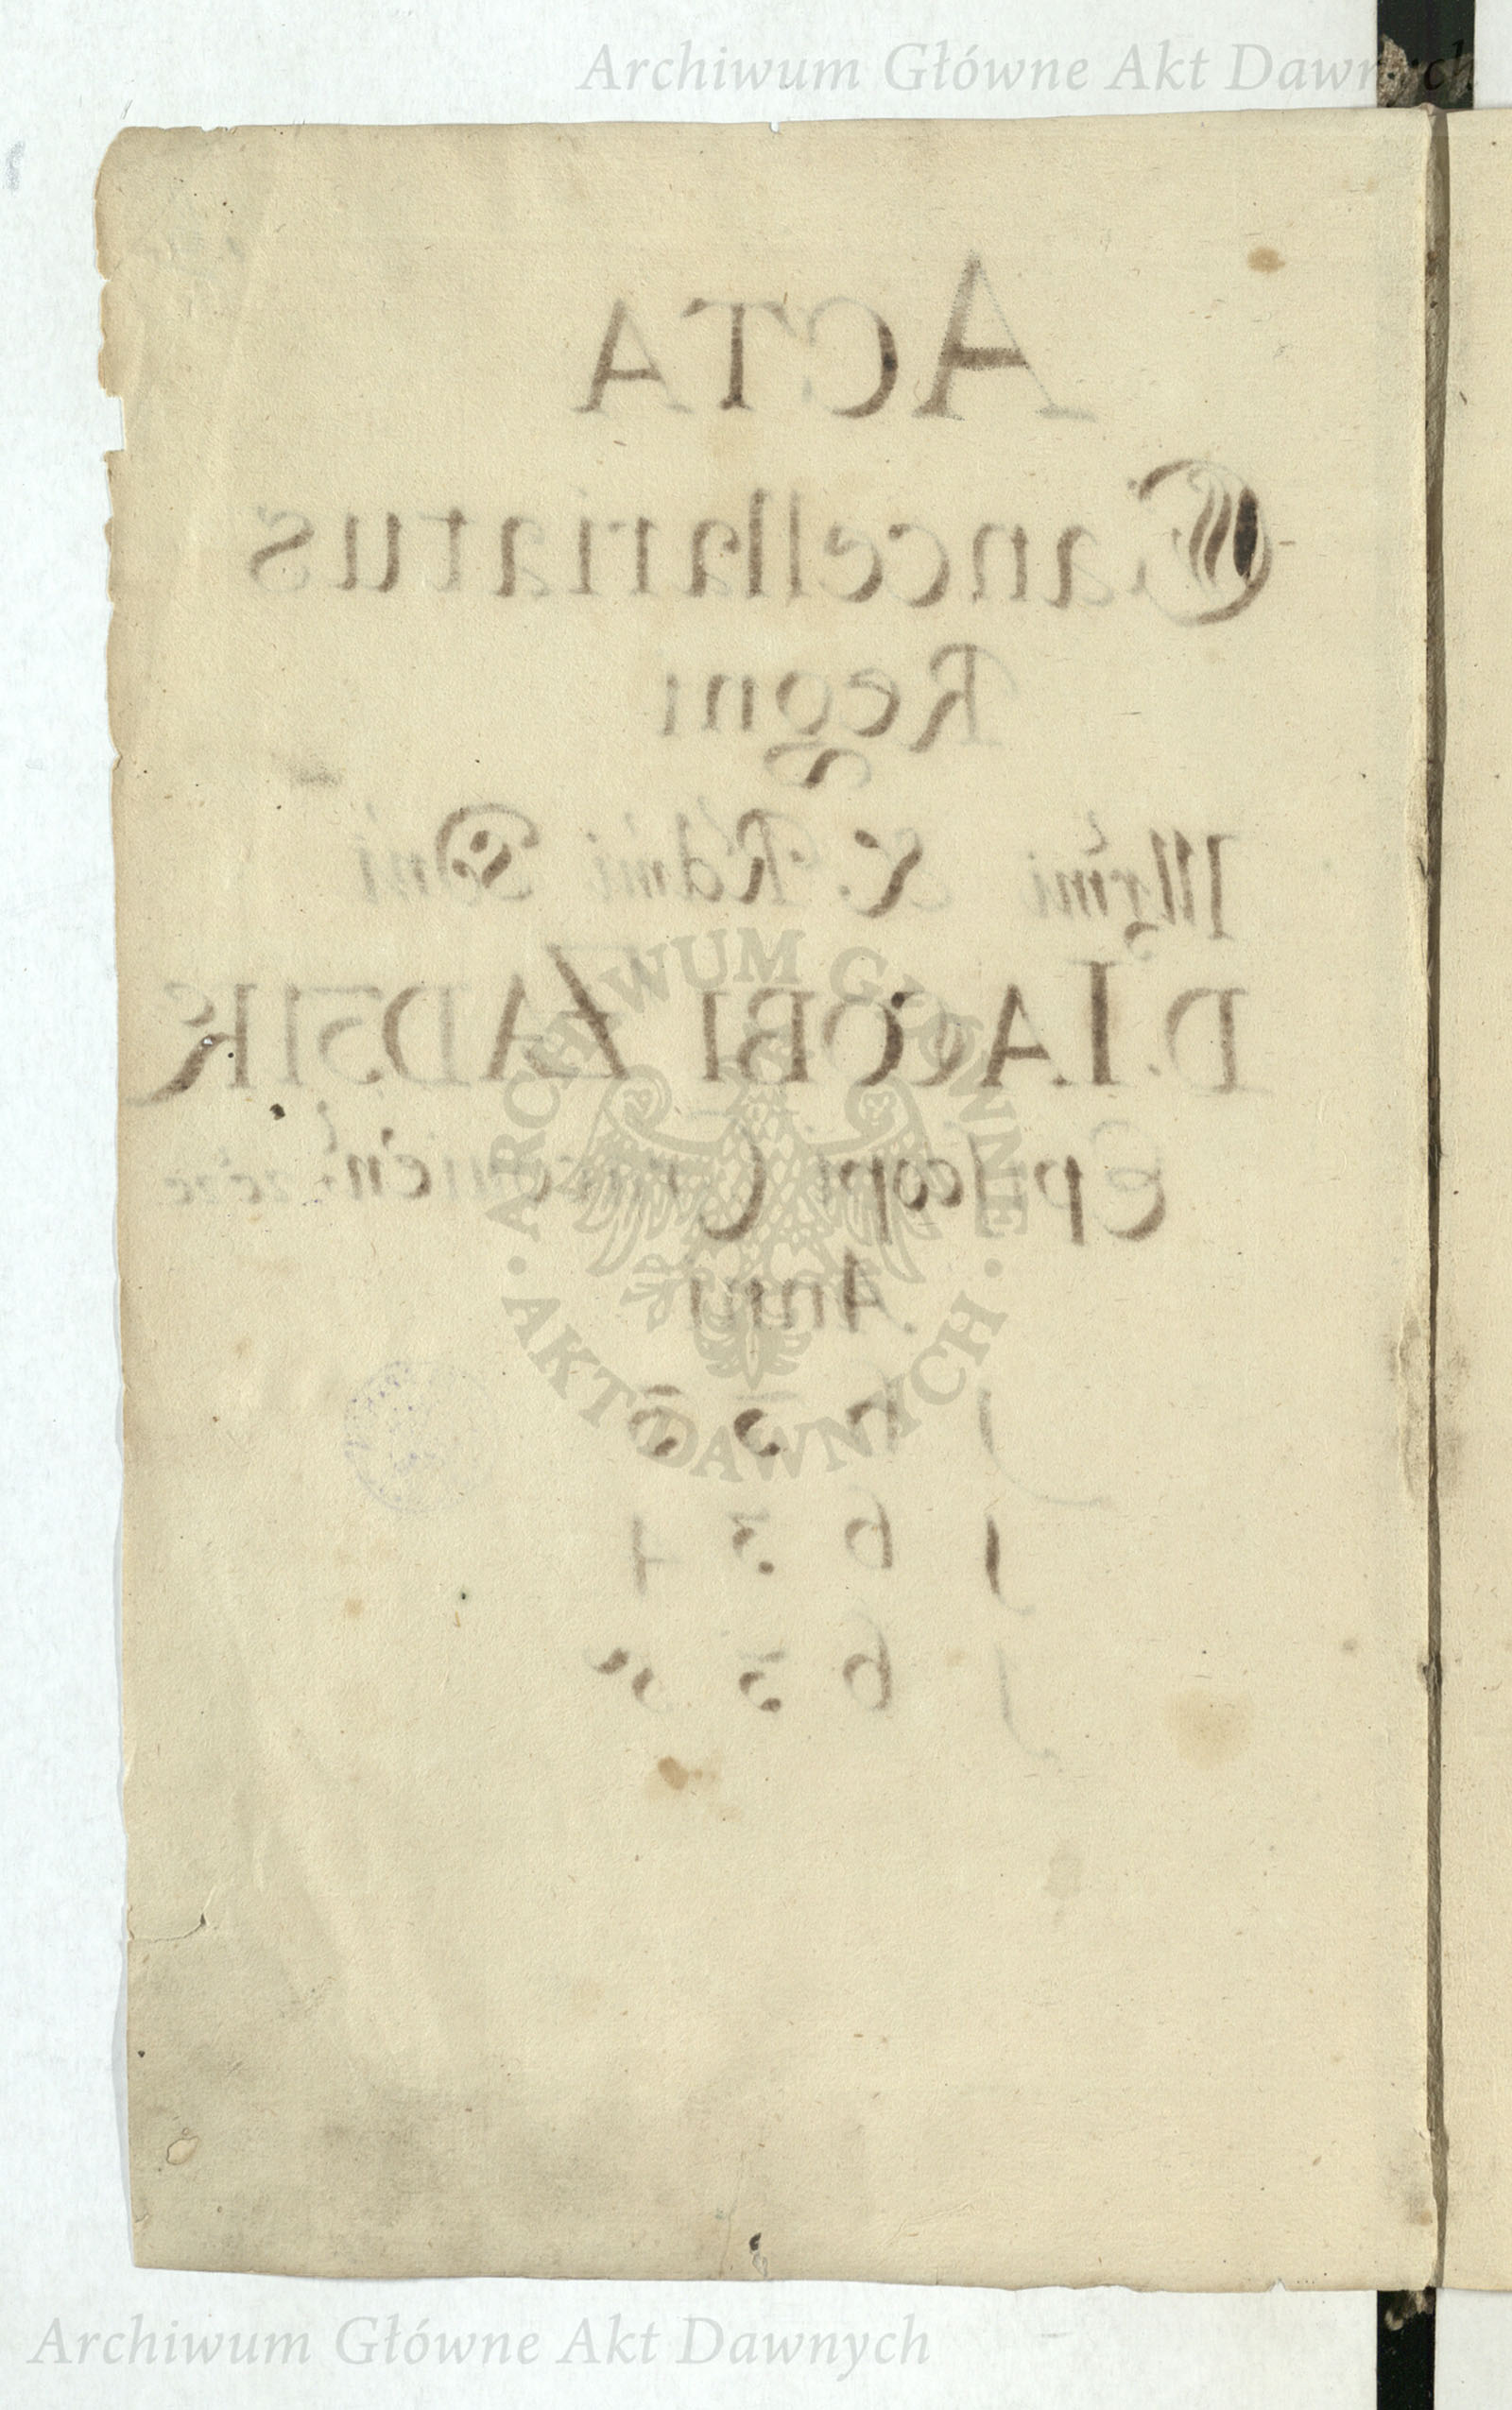 Archiwum Główne Akt Dawnych
ACTA
Cancellariatus
Regni
Illrmi & Rdmi Dni
D. IACOBI ZADSIK
Episcopi
Anni
1 6 3
1 6 3 4
1 6 3 5
ARCHIWUM GŁÓWNE
AKT DAWNYCH
Archiwum Główne Akt Dawnych